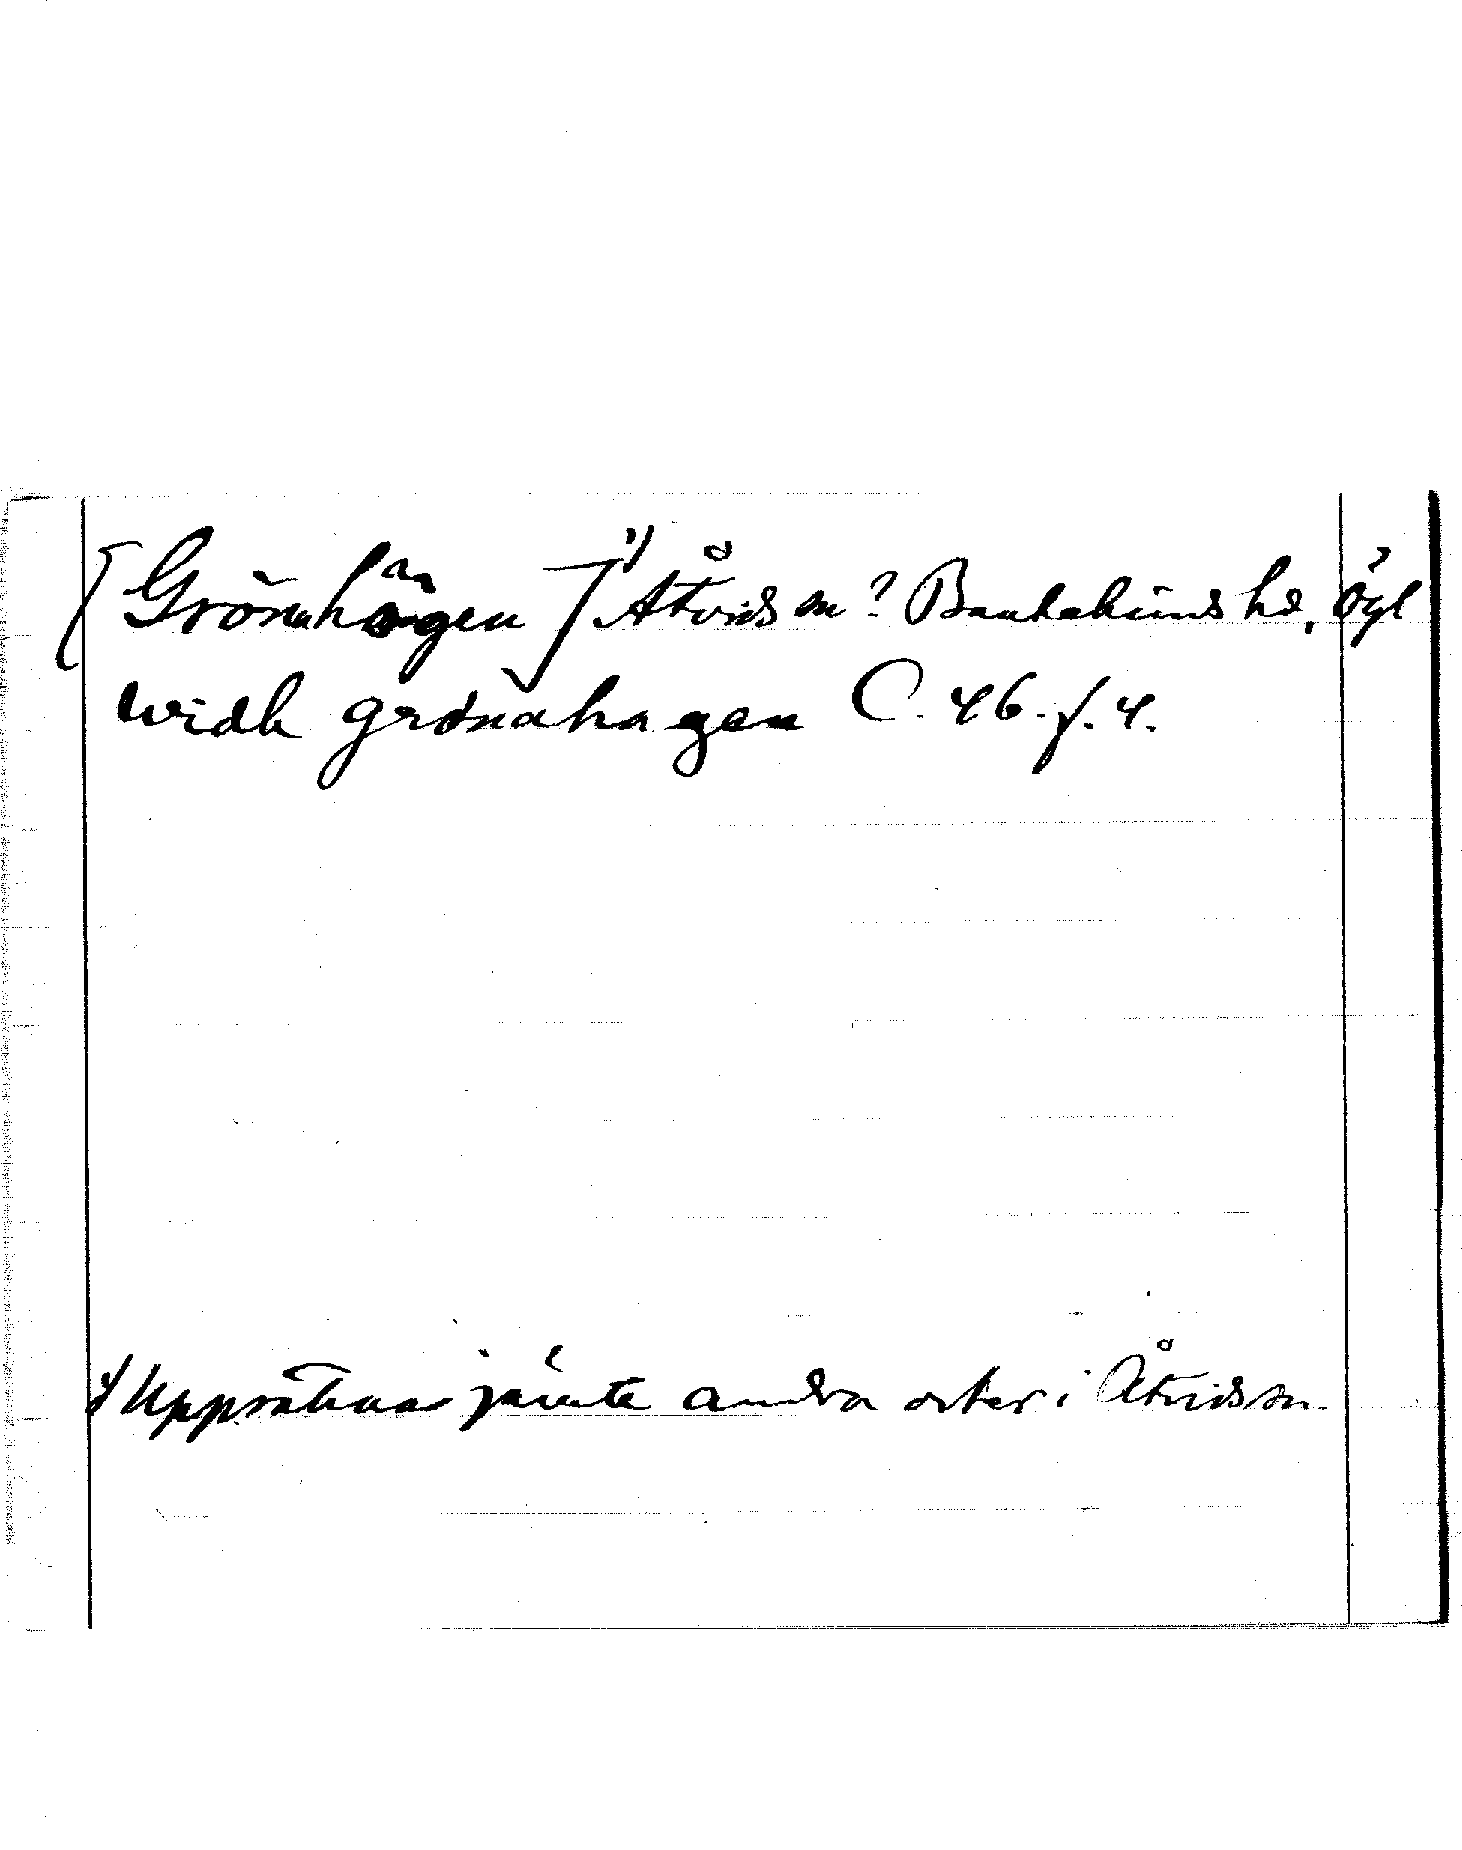 [Grönahögen]¹⁾ Åtvids sn? Bankekinds hd, Ögl
widh grönahagen C. 46. f. 4.
1) Uppräknas jämte andra orter i Åtvids sn.